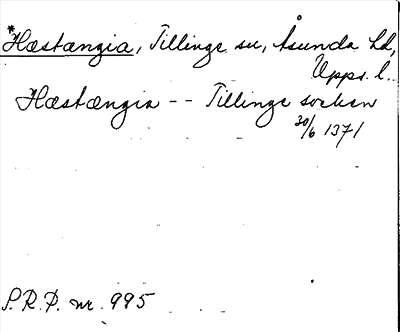 *Hæstængia, Tillinge su, Åsunda hd,
Upps. l.
Hæstængia -- Tillinge socken
30/6 1371
S.R.P. nr. 995